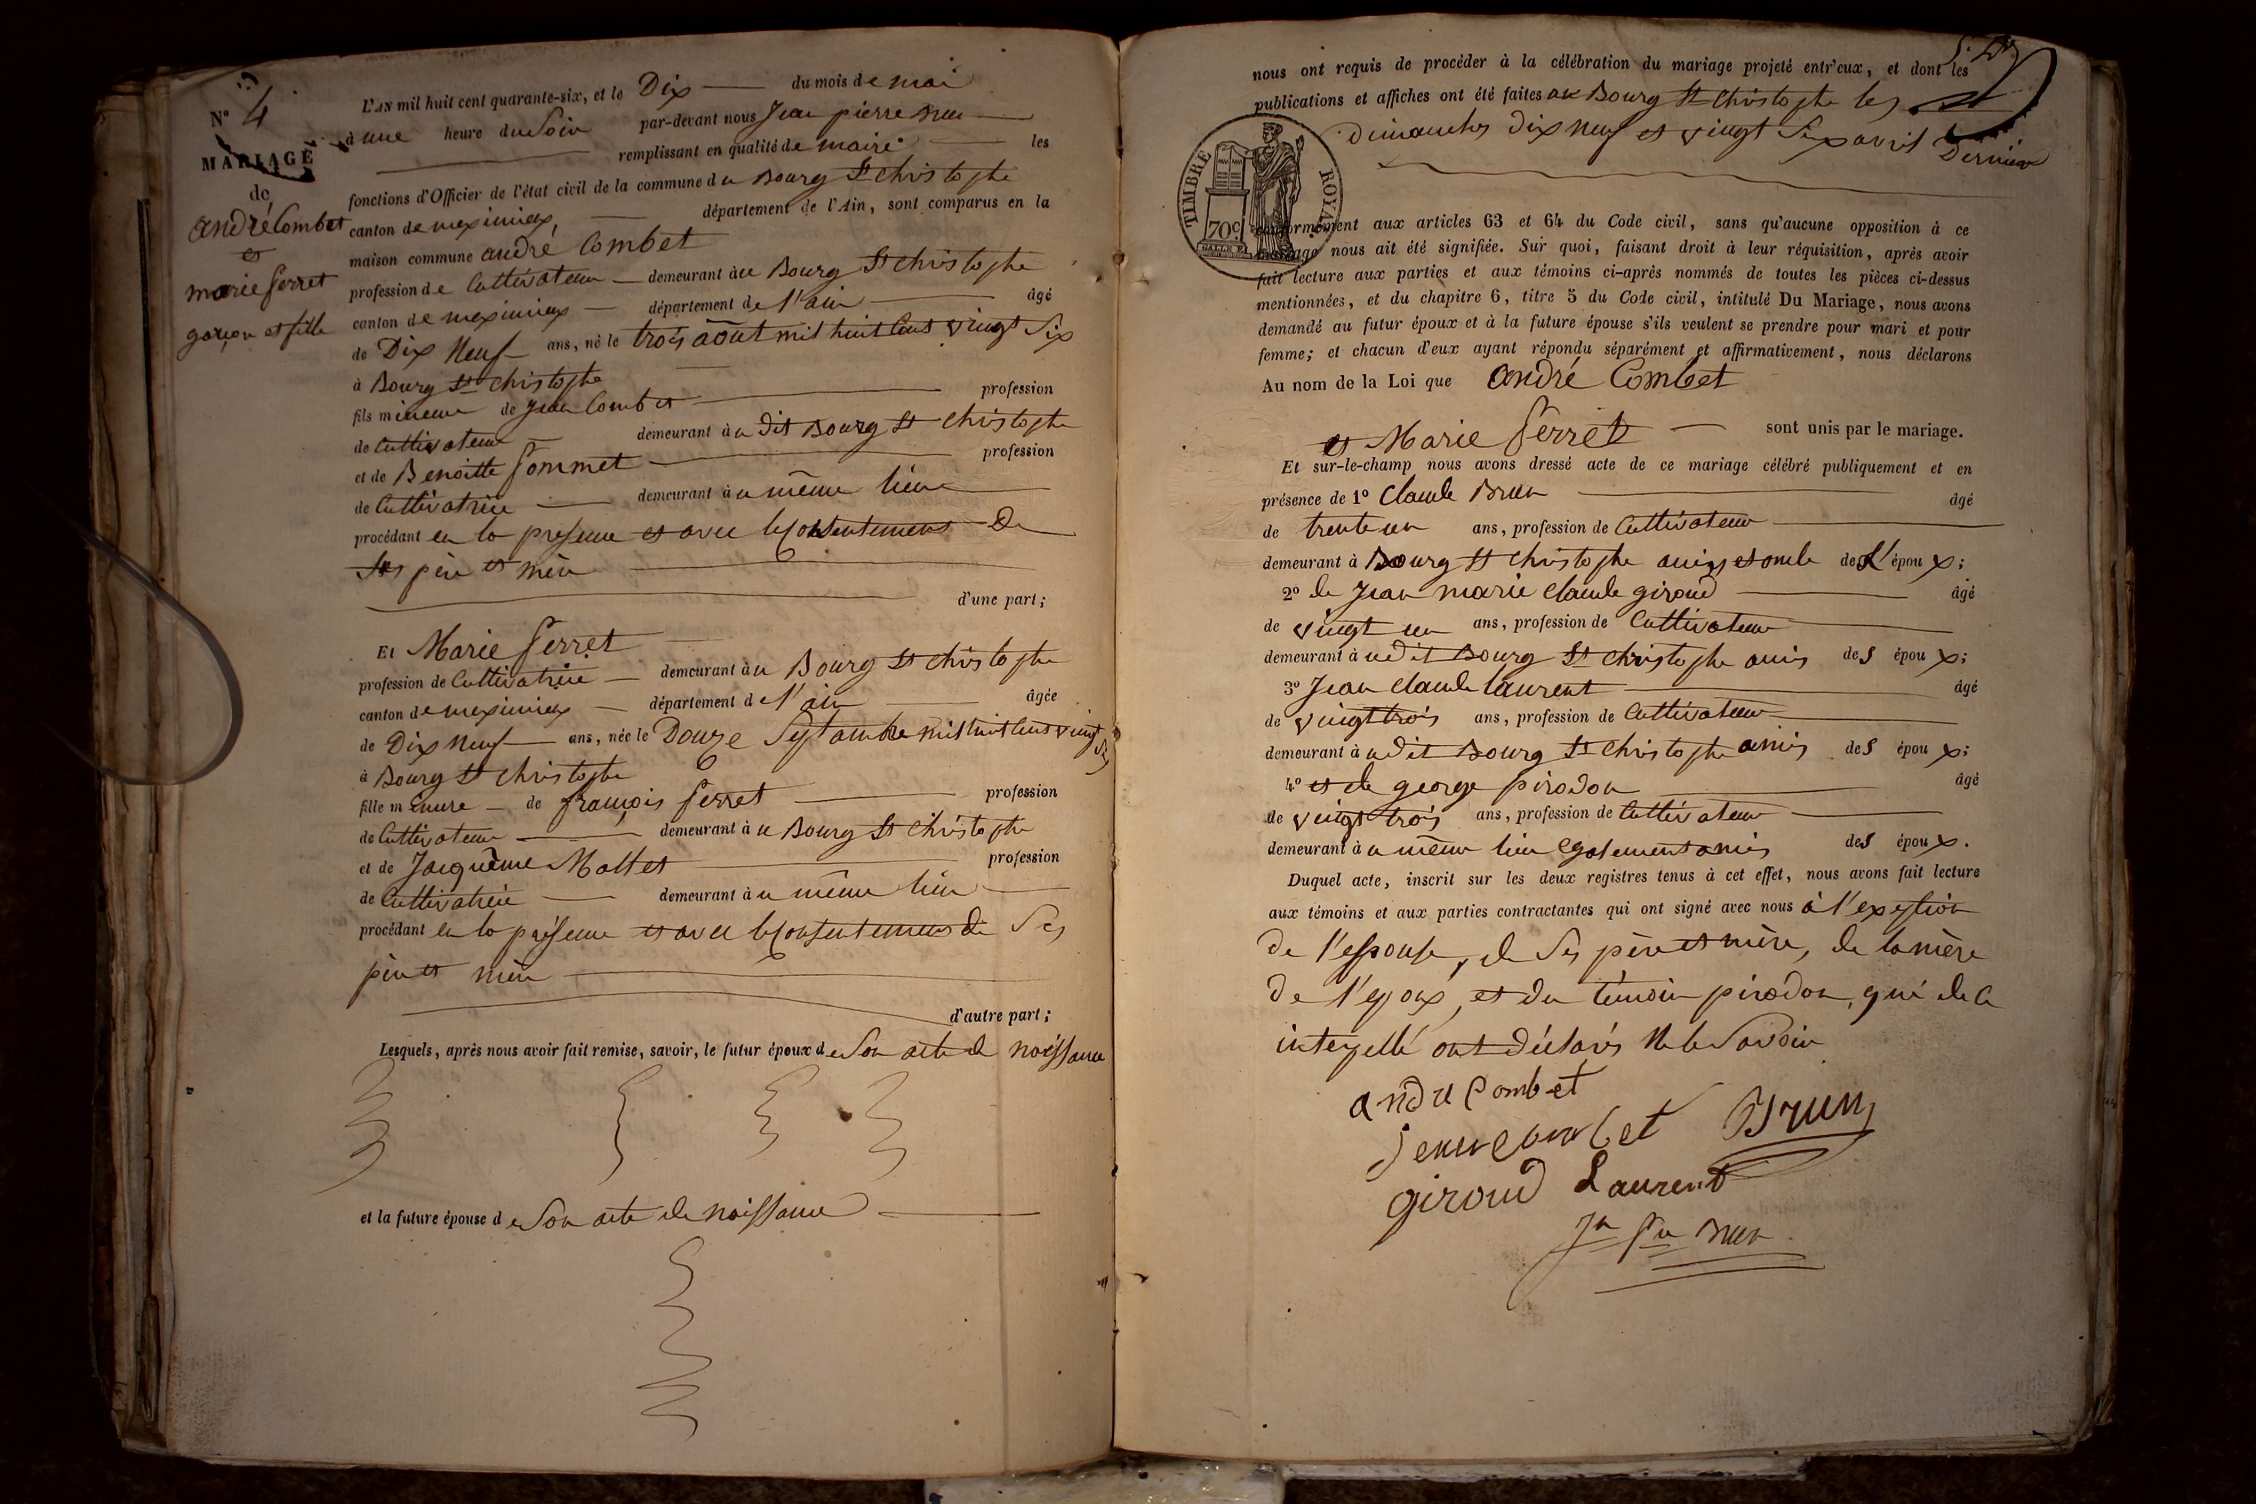 N° 4
MARIAGE
de
andré Combet
et
marie ferret
garçon et fille
L'AN mil huit cent quarante-six, et le Dix du mois de mai
à une heure du Soir par-devant nous Jean pierre Brun
remplissant en qualité de maire les
fonctions d'Officier de l'état civil de la commune du Bourg St christophe
canton de meximieux département de l'Ain, sont comparus en la
maison commune andré Combet
profession de Cultivateur demeurant au Bourg St christophe
canton de meximieux département de l'ain âgé
de Dix Neuf ans, né le trois août mil huit Cent vingt Six
à Bourg St christophe
fils mineur de Jean Combet profession
de Cultivateur demeurant au dit Bourg St christophe
et de Benoitte Pommet profession
de Cultivatrice demeurant au même lieu
procédant en la presence et avec le Consentement De
Ses père et mère
d'une part;
Et Marie ferret
profession de Cultivatrice demeurant au Bourg St christophe
canton de meximieux département de l'ain âgée
de Dix Neuf ans, née le Douze Septambre mil huit Cent vingt Six
à Bourg St christophe
fille mineure de françois ferret profession
de Cultivateur demeurant au Bourg St christophe
et de Jacquême Mollet profession
de Cultivatrice demeurant au même lieu
procédant en la présence et avec le Consentement de Ses
père et mère
d'autre part;
Lesquels, après nous avoir fait remise, savoir, le futur époux de Son acte de naissance
et la future épouse de Son acte de naissance
nous ont requis de procéder à la célébration du mariage projeté entr'eux, et dont les
publications et affiches ont été faites au Bourg St christophe les
dimanches dix neuf et vingt Six avril Dernier
TIMBRE ROYAL
70c
conformément aux articles 63 et 64 du Code civil, sans qu'aucune opposition à ce
mariage nous ait été signifiée. Sur quoi, faisant droit à leur réquisition, après avoir
fait lecture aux parties et aux témoins ci-après nommés de toutes les pièces ci-dessus
mentionnées, et du chapitre 6, titre 5 du Code civil, intitulé Du Mariage, nous avons
demandé au futur époux et à la future épouse s'ils veulent se prendre pour mari et pour
femme; et chacun d'eux ayant répondu séparément et affirmativement, nous déclarons
Au nom de la Loi que andré Combet
et Marie ferret sont unis par le mariage.
Et sur-le-champ nous avons dressé acte de ce mariage célébré publiquement et en
présence de 1° Claude Brun âgé
de trente un ans, profession de Cultivateur
demeurant à Bourg St christophe amis et oncle de L'époux;
2° de Jean marie claude giroud âgé
de vingt un ans, profession de Cultivateur
demeurant au dit Bourg St christophe amis des époux;
3° Jean claude laurent âgé
de vingt trois ans, profession de Cultivateur
demeurant au dit Bourg St christophe amis des époux;
4° et de george pirodon âgé
de vingt trois ans, profession de Cultivateur
demeurant au même lieu egalement amis des époux.
Duquel acte, inscrit sur les deux registres tenus à cet effet, nous avons fait lecture
aux témoins et aux parties contractantes qui ont signé avec nous à l'exeption
de l'epouse, de Ses père et mère, de la mère
de l'epoux, et du témoin pirodon, qui de ce
interpellé ont déclarés Ne le Savoir
andre Combet
Jean combet Brun
giroud Laurent
Jn Pre Brun